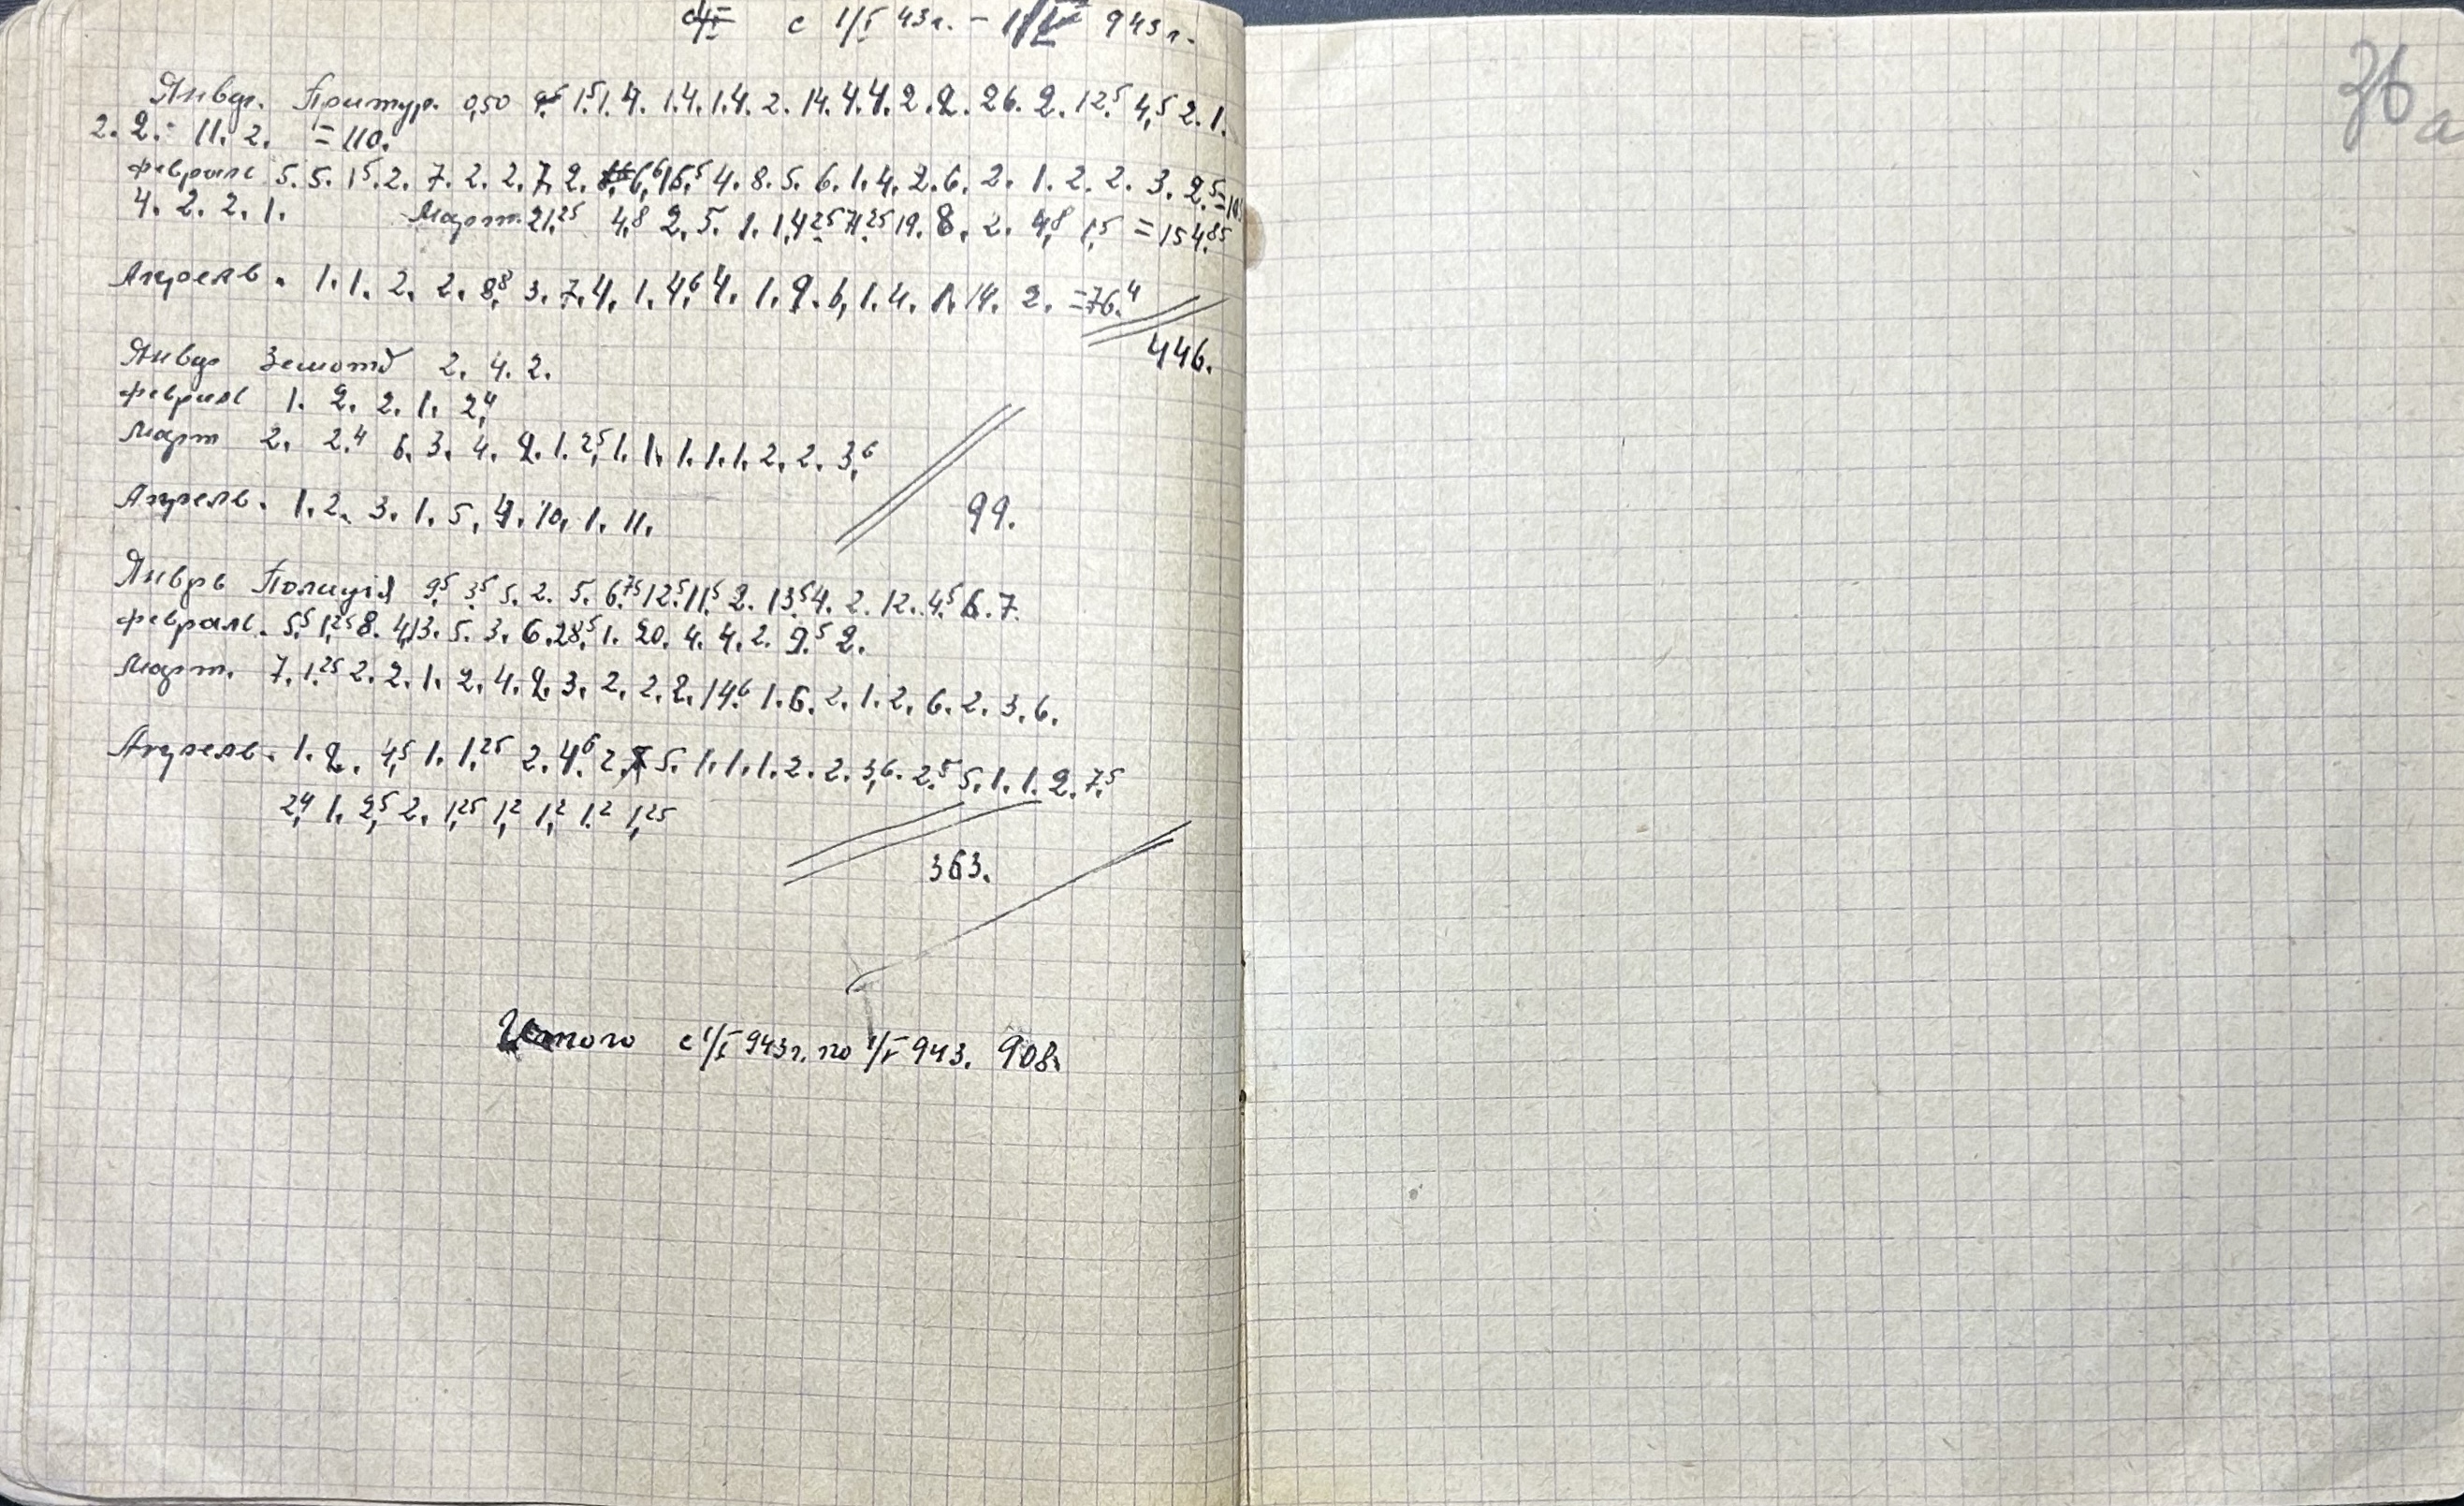 с 1/I 43г. – 1/V 943г.
36 а
Январ. Претур. 0,50 1,5 1. 4. 1. 4. 1. 4. 2. 14. 4. 4. 2. 2. 26. 2. 12,5 4,5 2. 1.
2. 2. 11. 2. = 110.
Февраль 5. 5. 1,5. 2. 7. 2. 2. 7. 2. 6,6 15,5 4. 8. 5. 6. 1. 4. 2. 6. 2. 1. 2. 2. 3. 2,5 =
4. 2. 2. 1. Март. 21,25 4,8 2. 5. 1. 1,4 25 71,25 19. 8. 2. 4,8 1,5 = 154,85
Апрель. 1. 1. 2. 2. 8,8 3. 7. 4. 1. 4,6 4. 1. 9. 6, 1. 4. 1. 14. 2. = 76,4
446.
Январ Земотд 2. 4. 2.
Февраль 1. 2. 2. 1. 2,4
Март 2. 2,4 6. 3. 4. 2. 1. 2,5 1. 1. 1. 1. 1. 2. 2. 3,6
Апрель. 1. 2. 3. 1. 5. 4. 10. 1. 11.
99.
Январь Полиція 9,5 3,5 5. 2. 5. 6,75 12,5 11,5 2. 13,5 4. 2. 12. 4,5 6. 7.
Февраль. 5,5 1,25 8. 4,13. 5. 3. 6. 28,5 1. 20. 4. 4. 2. 9,5 2.
Март. 7. 1,25 2. 2. 1. 2. 4. 2. 3. 2. 2. 2. 14,6 1. 6. 2. 1. 2. 6. 2. 3. 6.
Апрель. 1. 2. 4,5 1. 1,25 2. 4,6 2. 5. 1. 1. 1. 2. 2. 3,6. 2,5 5. 1. 1. 2. 7,5
2,4 1. 2,5 2. 1,25 1,2 1,2 1,2 1,25
363.
Итого с 1/I 943г. по 1/V 943. 908.